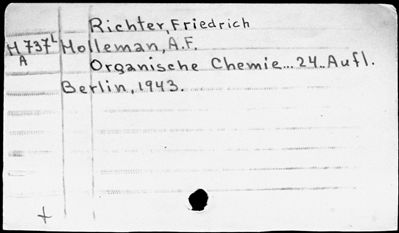 Richter, Friedrich
H 737L Holleman, A.F.
A Organische Chemie... 24. Aufl.
Berlin, 1943.